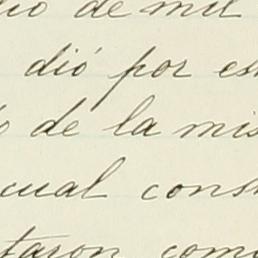 de mil
dió por es
de la mis
cual cons
taron com